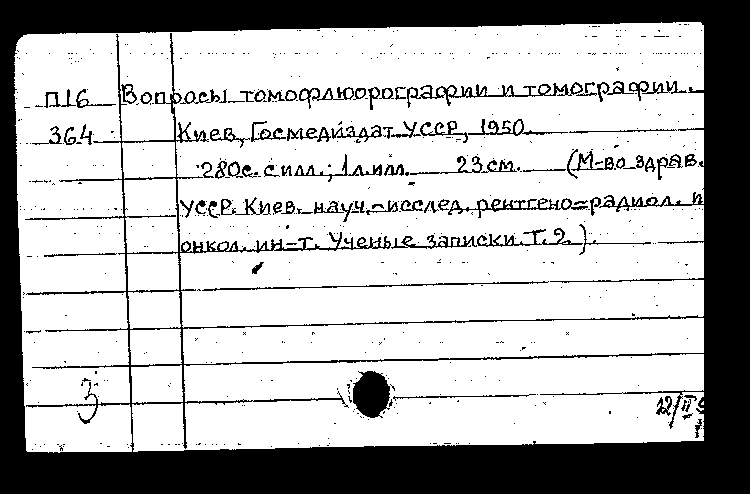 П16 Вопросы томофлюорографии и томографии.
364 Киев, Госмедиздат УССР, 1950.
280с. с илл.; 1 л. илл. 23 см. (М-во здрав.
УССР. Киев. науч.-исслед. рентгено=радиол. и
онкол. ин-т. Ученые записки. Т. 2.).
3
12/II